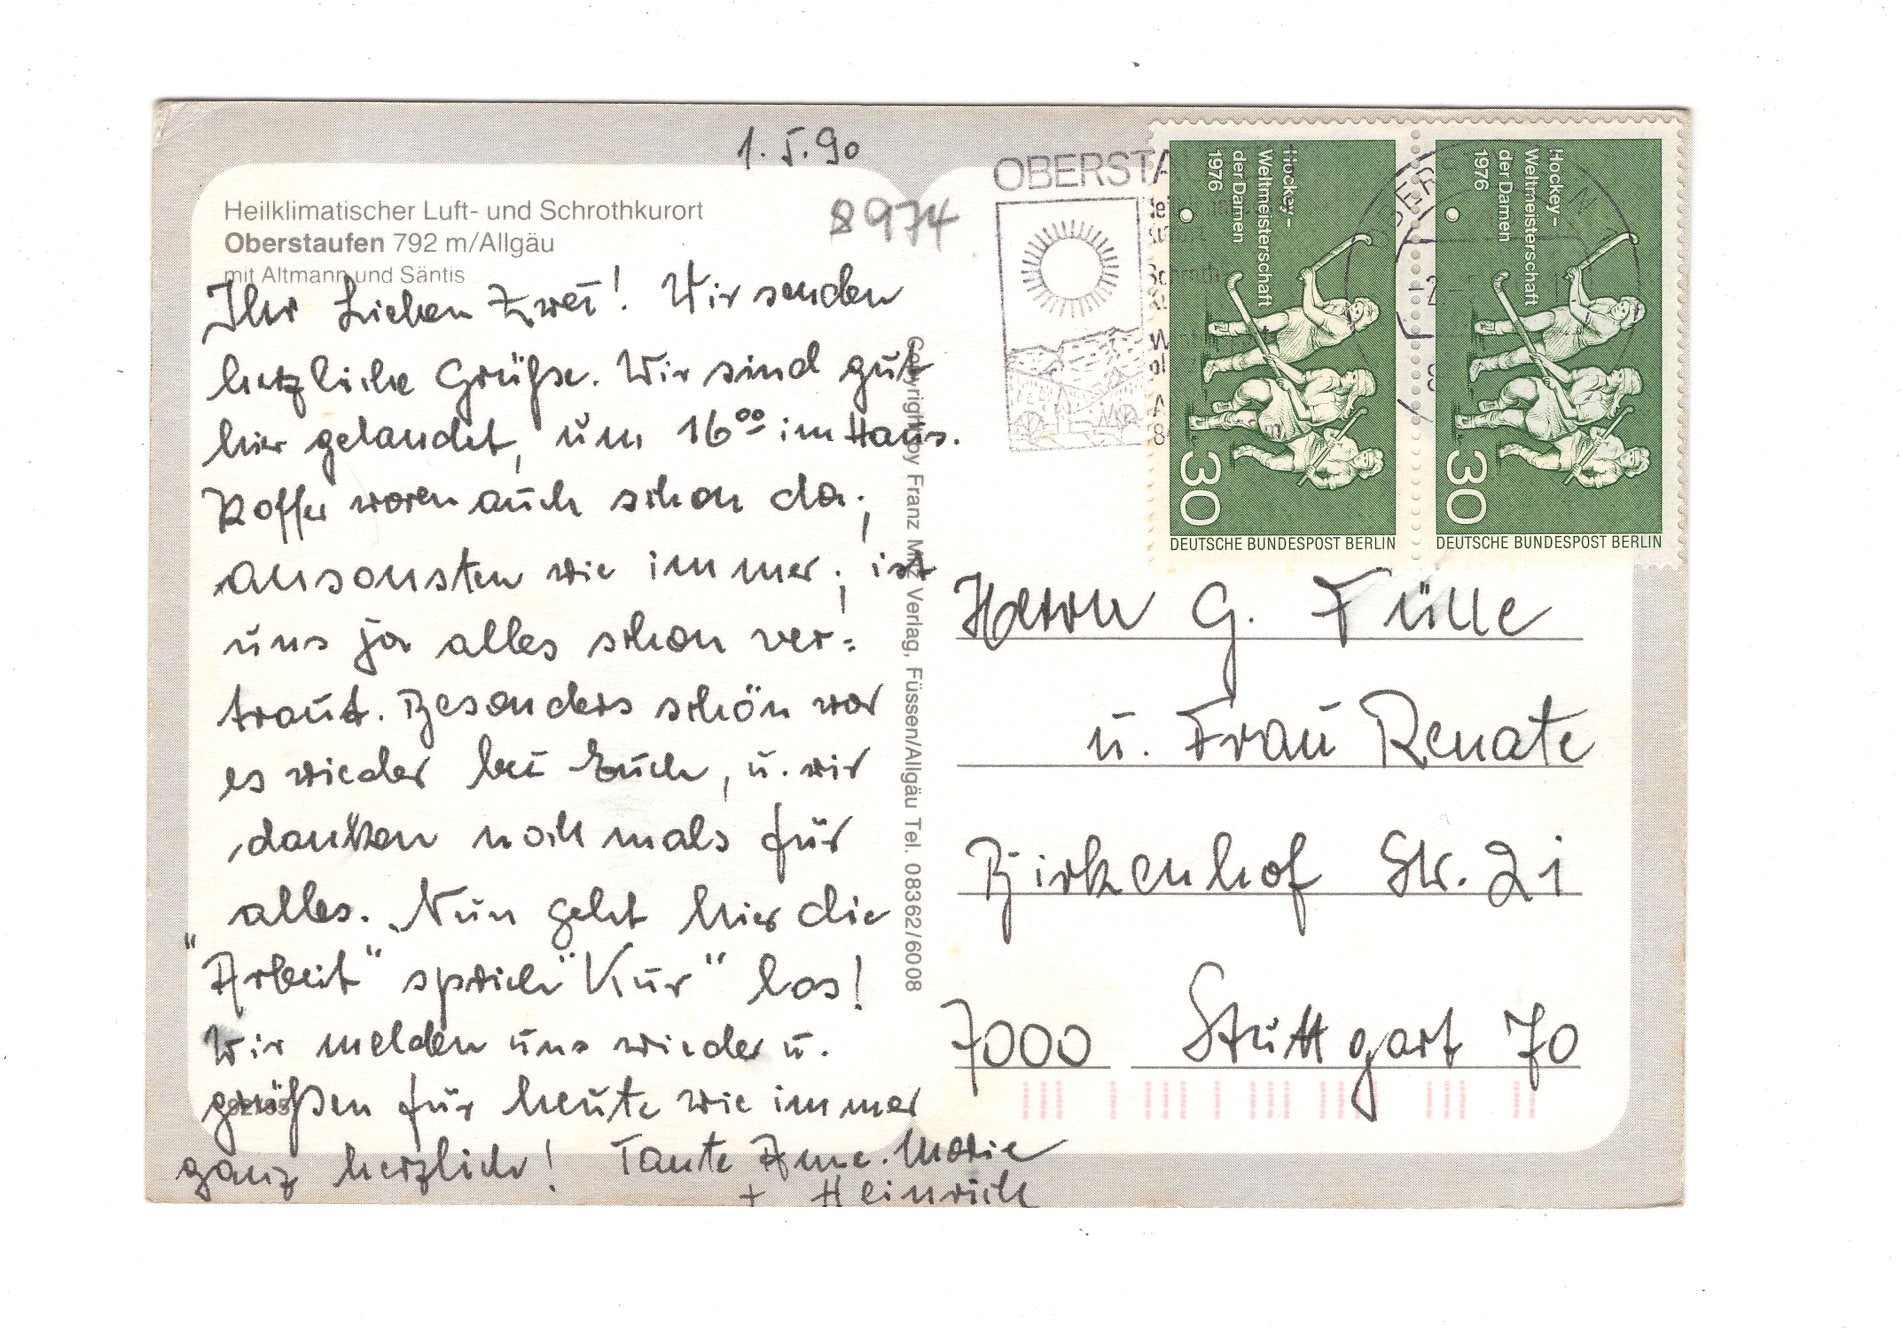 1.5.90
8974
Heilklimatischer Luft- und Schrothkurort
Oberstaufen 792 m/Allgäu
mit Altmann und Säntis
Ihr Lieben Zwei! Wir senden
herzliche Grüße. Wir sind gut
hier gelandet, um 16⁰⁰ im Haus.
Koffer waren auch schon da;
ansonsten wie immer; ist
uns ja alles schon ver=
traut. Besonders schön war
es wieder bei Euch, u. wir
danken nochmals für
alles. Nun geht hier die
"Arbeit" sprich "Kur" los!
Wir melden uns wieder u.
grüßen für heute wie immer
ganz herzlich! Tante Anne-Marie
+ Heinrich
Copyright by Franz Milz Verlag, Füssen/Allgäu Tel. 08362/6008
OBERSTA
Hockey-
Weltmeisterschaft
der Damen
1976
30
DEUTSCHE BUNDESPOST BERLIN
Hockey-
Weltmeisterschaft
der Damen
1976
30
DEUTSCHE BUNDESPOST BERLIN
Herrn G. Fülle
u. Frau Renate
Birkenhof Str. 21
7000 Stuttgart 70